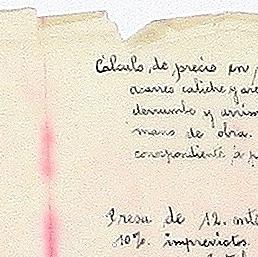 Cálculo, de precio en
acarreo caliche y are
derrumbe y arrim
mano de obra.
correspondiente á p
Presa de 12. mte
10%. imprevistos.